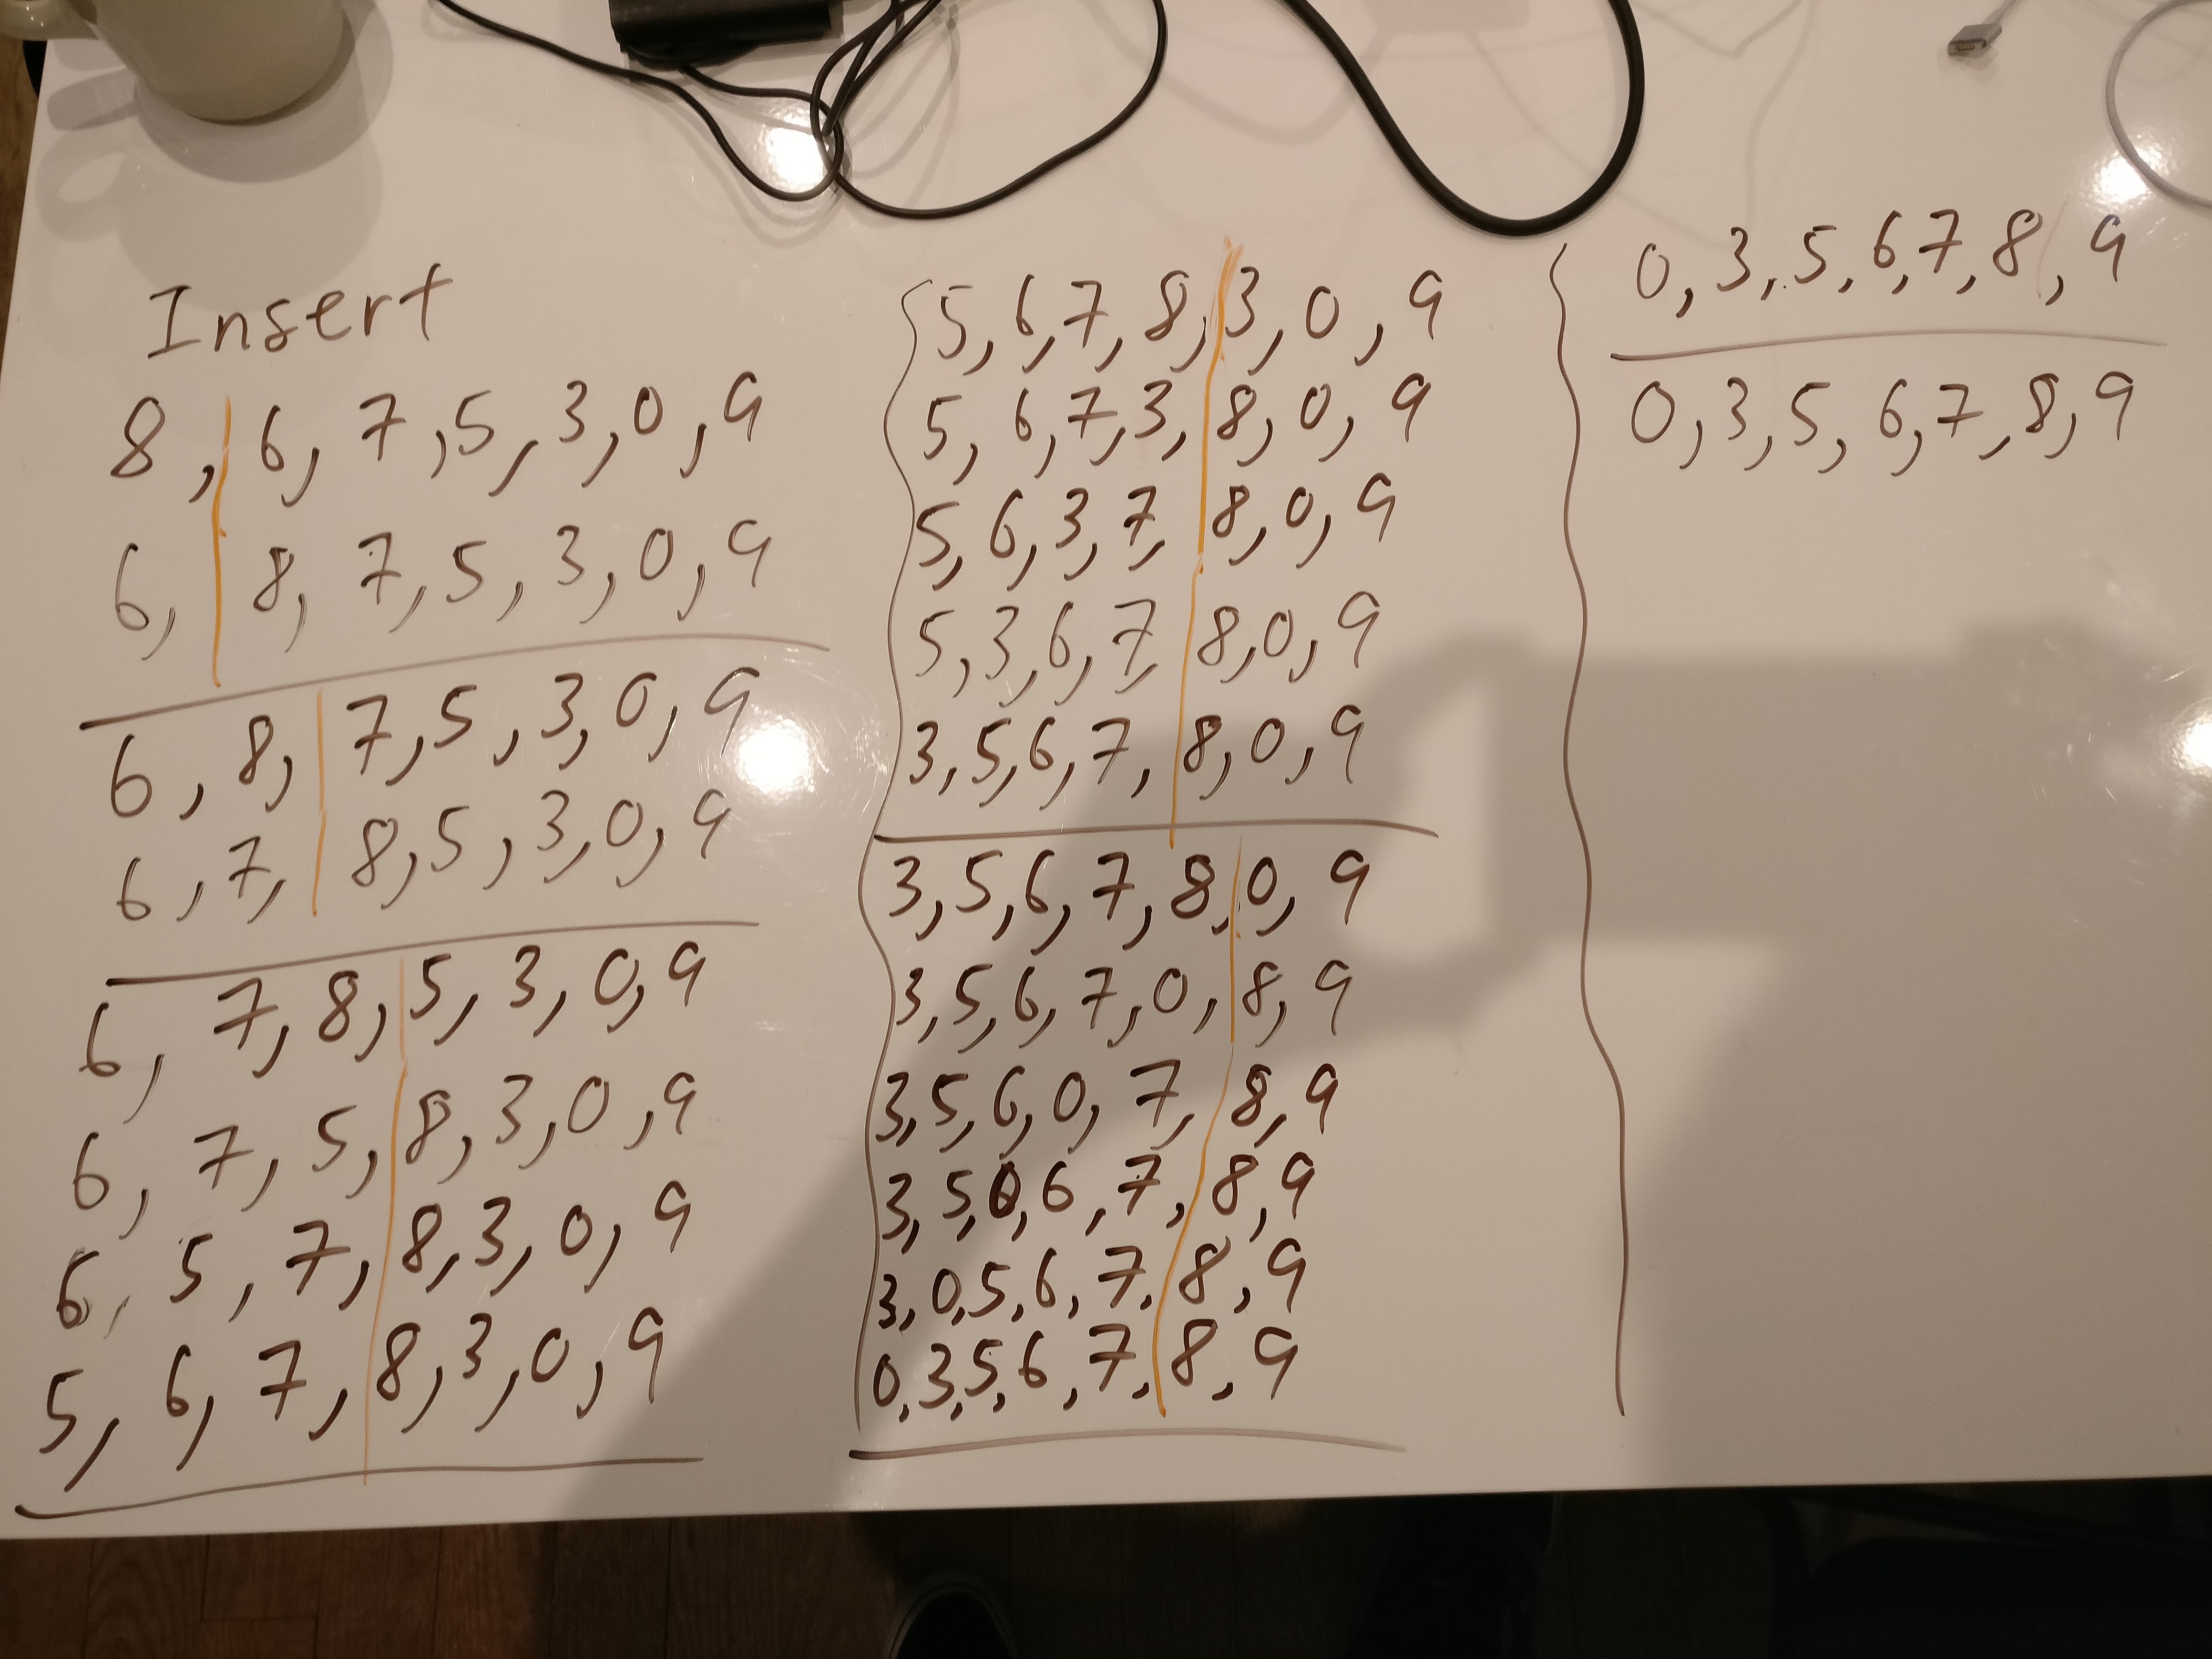 Insert
8, 6, 7, 5, 3, 0, 9
6, 8, 7, 5, 3, 0, 9
6, 8, 7, 5, 3, 0, 9
6, 7, 8, 5, 3, 0, 9
6, 7, 8, 5, 3, 0, 9
6, 7, 5, 8, 3, 0, 9
6, 5, 7, 8, 3, 0, 9
5, 6, 7, 8, 3, 0, 9
5, 6, 7, 8, 3, 0, 9
5, 6, 7, 3, 8, 0, 9
5, 6, 3, 7, 8, 0, 9
5, 3, 6, 7, 8, 0, 9
3, 5, 6, 7, 8, 0, 9
3, 5, 6, 7, 8, 0, 9
3, 5, 6, 7, 0, 8, 9
3, 5, 6, 0, 7, 8, 9
3, 5, 0, 6, 7, 8, 9
3, 0, 5, 6, 7, 8, 9
0, 3, 5, 6, 7, 8, 9
0, 3, 5, 6, 7, 8, 9
0, 3, 5, 6, 7, 8, 9